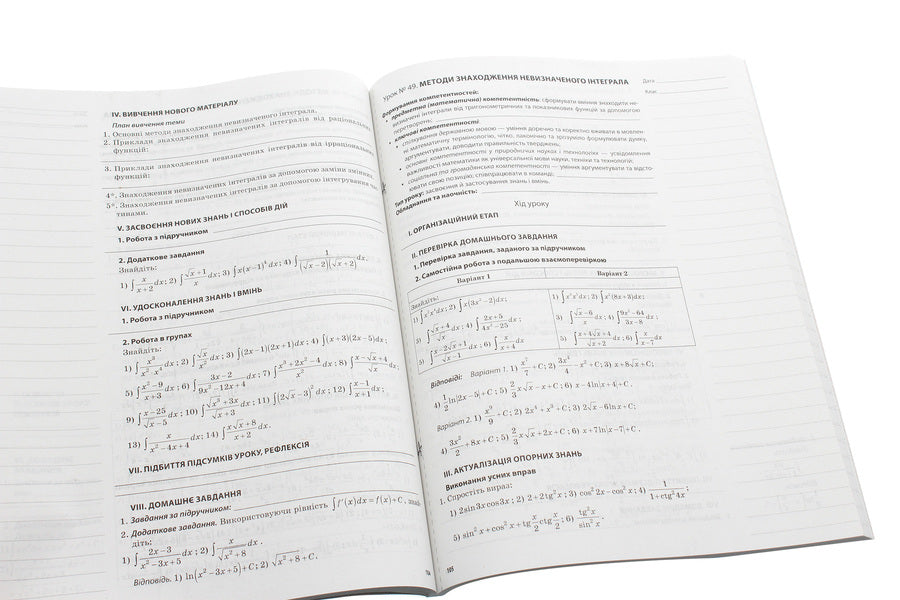 IV. ВИВЧЕННЯ НОВОГО МАТЕРІАЛУ
План вивчення теми
1. Основні методи знаходження невизначеного інтеграла.
2. Приклади знаходження невизначених інтегралів від раціональних
функцій:
3. Приклади знаходження невизначених інтегралів від ірраціональних
функцій:
4*. Знаходження невизначених інтегралів за допомогою заміни змінної.
5*. Знаходження невизначених інтегралів за допомогою інтегрування час-
тинами.
V. ЗАСВОЄННЯ НОВИХ ЗНАНЬ І СПОСОБІВ ДІЙ
1. Робота з підручником
2. Додаткове завдання
Знайдіть:
1) ∫ x/(x+2) dx; 2) ∫ (√x+1)/x dx; 3) ∫ x(x−1)⁴ dx; 4) ∫ 1/((√x−2)(√x+2)) dx.
VI. УДОСКОНАЛЕННЯ ЗНАНЬ І ВМІНЬ
1. Робота з підручником
2. Робота в групах
Знайдіть:
1) ∫ x³/(x²·x⁴) dx; 2) ∫ √x/x² dx; 3) ∫ (2x−1)(2x+1)dx; 4) ∫ (x+3)(2x−5)dx;
5) ∫ (x²−9)/(x+3) dx; 6) ∫ (3x−2)/(9x²−12x+4) dx; 7) ∫ (x³+2x²−4)/x² dx; 8) ∫ (x−√x+4)/√x dx;
9) ∫ (x−25)/(√x−5) dx; 10) ∫ (√x³+3x)/(√x+3) dx; 11) ∫ (2√x−3)² dx; 12) ∫ (x−1)/(x+1) dx;
13) ∫ x/(x²−4x+4) dx; 14) ∫ (x√x+8)/(x+2) dx.
VII. ПІДБИТТЯ ПІДСУМКІВ УРОКУ, РЕФЛЕКСІЯ
VIII. ДОМАШНЄ ЗАВДАННЯ
1. Завдання за підручником:
2. Додаткове завдання. Використовуючи рівність ∫ f′(x)dx = f(x)+C, знай-
діть:
1) ∫ (2x−3)/(x²−3x+5) dx; 2) ∫ x/√(x²+8) dx.
Відповідь. 1) ln(x²−3x+5)+C; 2) √(x²+8)+C.
104
Урок № 49. МЕТОДИ ЗНАХОДЖЕННЯ НЕВИЗНАЧЕНОГО ІНТЕГРАЛА
Дата
Клас
Формування компетентностей:
• предметна (математична) компетентність: сформувати вміння знаходити не-
визначені інтеграли від тригонометричних та показникових функцій за допомогою
перетворень;
• ключові компетентності:
• спілкування державною мовою — уміння доречно та коректно вживати в мовлен-
ні математичну термінологію, чітко, лаконічно та зрозуміло формулювати думку,
аргументувати, доводити правильність тверджень;
• основні компетентності у природничих науках і технологіях — усвідомлення
важливості математики як універсальної мови науки, техніки та технологій;
• соціальна та громадянська компетентності — уміння аргументувати та відсто-
ювати свою позицію, співпрацювати в команді;
Тип уроку: засвоєння й застосування знань і вмінь.
Обладнання та наочність:
Хід уроку
I. ОРГАНІЗАЦІЙНИЙ ЕТАП
II. ПЕРЕВІРКА ДОМАШНЬОГО ЗАВДАННЯ
1. Перевірка завдання, заданого за підручником
2. Самостійна робота з подальшою взаємоперевіркою
Варіант 1
Варіант 2
Знайдіть:
1) ∫ x²x⁴dx; 2) ∫ x(3x²−2)dx;
3) ∫ (√x+4)/√x dx; 4) ∫ (2x+5)/(4x²−25) dx;
5) ∫ (x−2√x+1)/(√x−1) dx; 6) ∫ x/(x+4) dx
1) ∫ x³x⁵dx; 2) ∫ x²(8x+3)dx;
3) ∫ (√x−6)/x dx; 4) ∫ (9x²−64)/(3x−8) dx;
5) ∫ (x+4√x+4)/(√x+2) dx; 6) ∫ x/(x−7) dx
Відповіді: Варіант 1. 1) x⁷/7+C; 2) 3x⁴/4−x²+C; 3) x+8√x+C;
4) 1/2 ln|2x−5|+C; 5) 2/3 x√x−x+C; 6) x−4ln|x+4|+C.
Варіант 2. 1) x⁹/9+C; 2) 2x⁴+x³+C; 3) 2√x−6lnx+C;
4) 3x²/2+8x+C; 5) 2/3 x√x+2x+C; 6) x+7ln|x−7|+C.
III. АКТУАЛІЗАЦІЯ ОПОРНИХ ЗНАНЬ
Виконання усних вправ
1. Спростіть вираз:
1) 2sin3xcos3x; 2) 2+2tg²x; 3) cos²2x−cos²x; 4) 1/(1+ctg²4x);
5) sin²x+cos²x+tg x/2 ctg x/2; 6) tg²x/sin²x.
105